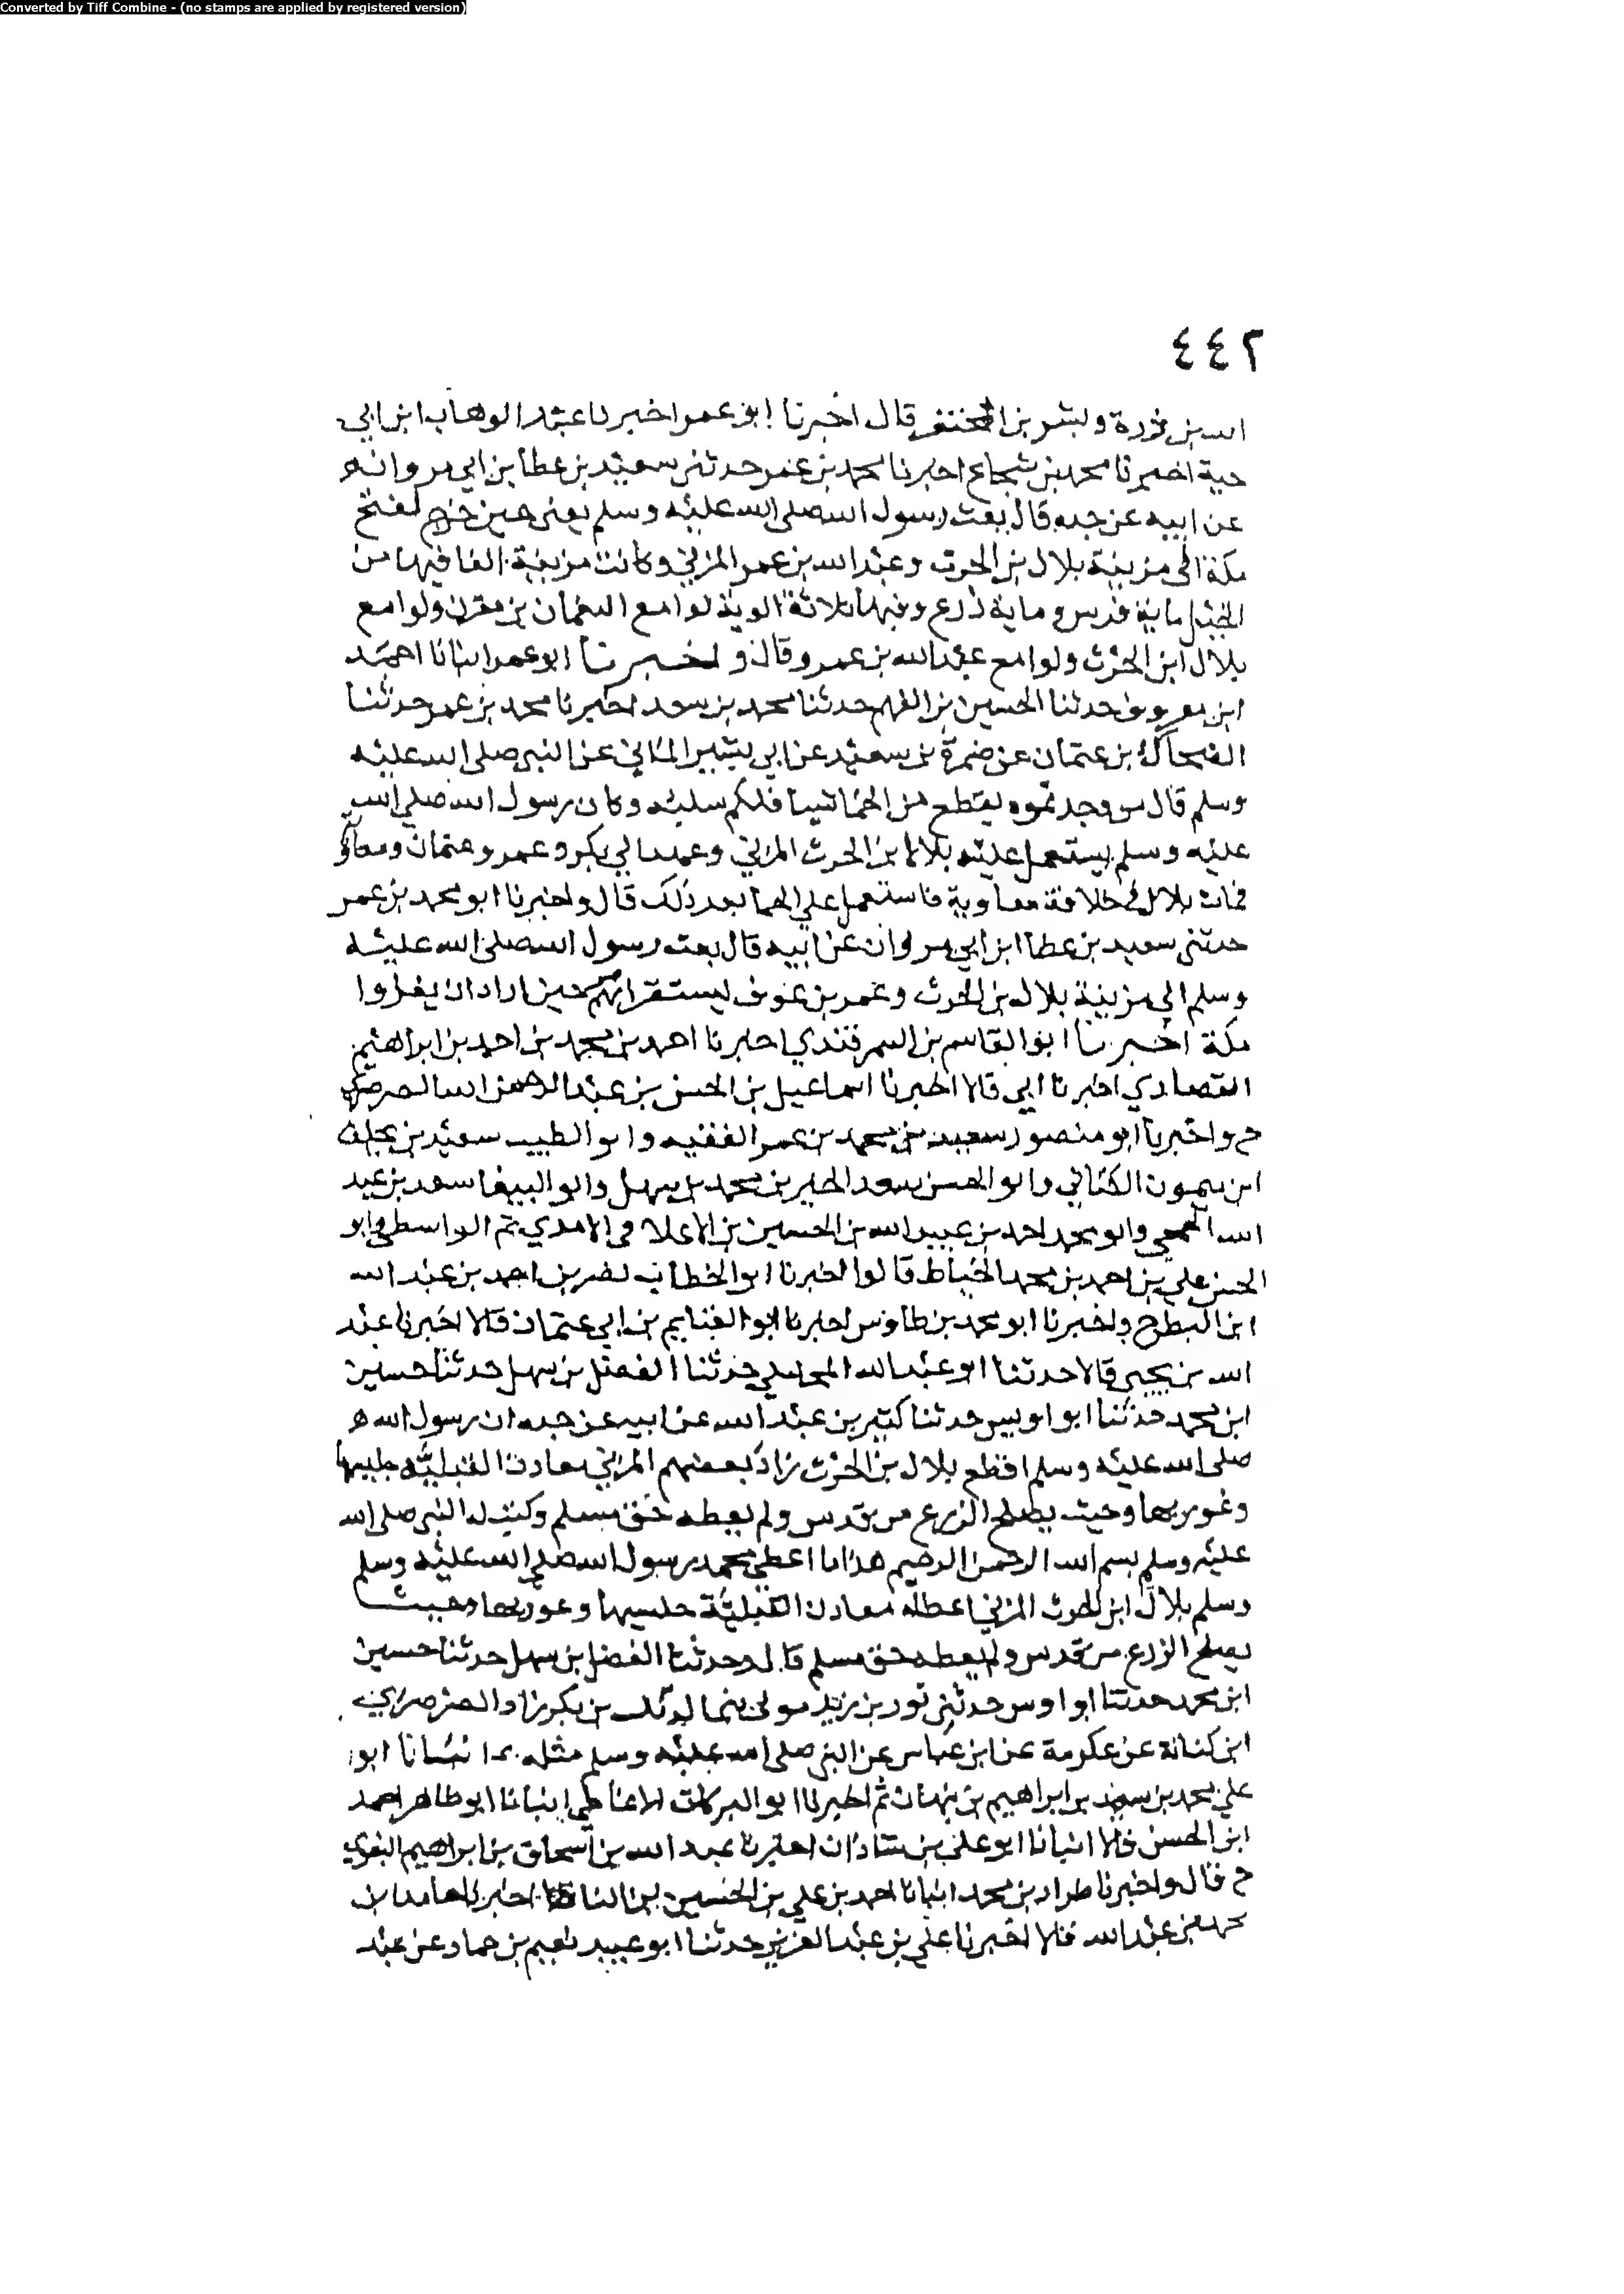 Converted by Tiff Combine - (no stamps are applied by registered version)
٤٤٢
الله بن درة وبشر بن المحتفز قال اخبرنا ابو عمر اخبرنا عبد الوهاب ابن ابي
حية اخبرنا محمد بن شجاع اخبرنا محمد بن عمر حدثني سعيد بن عطا بن ابي مروانه
عن ابيه عن جده قال بعث رسول الله صلى الله عليه وسلم يعنى حين خرج لفتح
مكة الى مزينة بلال بن الحرث وعبد الله بن عمر المزني وكانت مزينة الفا فيها من
الخيل ماية فرس وماية ذرع وفيها ثلاثة الوية لوا مع النعمان بن مقرن ولوا مع
بلال ابن الحرث ولوا مع عبد الله بن عمرو قال واخبرنا ابو عمر انبانا احمد
ابن معروف حدثنا الحسين بن الفهم حدثنا محمد بن سعد اخبرنا محمد بن عمر حدثنا
الضحاك بن عثمان عن ضمرة بن سعيد عن ابي بشير المانى عن النبي صلى الله عليه
وسلم قال من وجدتموه يقطع من الحما شيا فلكم سلبه وكان رسول الله صلى الله
عليه وسلم يستعمل عليه بلالا بن الحرث المزني وعهد ابي بكر وعمر وعثمان ومعاو
فمات بلال في خلافة معاوية فاستعمل على الحما بعد ذلك قال واخبرنا ابو محمد بن عمر
حدثنى سعيد بن عطا ابن ابي مروان عن ابيه قال بعث رسول الله صلى الله عليه
وسلم الى مزينة بلال بن الحرث وعمر بن عوف ليستنفرانهم حين اراد ان يغزوا
مكة اخبرنا ابو القاسم بن السمرقندي اخبرنا احمد بن محمد بن احمد بن ابراهيم
القصاري اخبرنا ابي قالا اخبرنا اسماعيل بن الحسن بن عبد الرحمن الصرصري
ح واخبرنا ابو منصور سعيد بن محمد بن عمر الفقيه وابو الطيب سعيد بن
ابن ميمون الكتاني وابو الحسن سعد الخير بن محمد بن سهل وابو سعد بن عبد
الله وابو محمد احمد بن عبيد الله بن الحسين بن الامدي ثم الواسطي وابو
الحسن علي بن احمد بن محمد الخياط قالوا اخبرنا ابو الخطاب نصر بن احمد بن عبد الله
ابن البطر ح واخبرنا ابو محمد بن طاوس اخبرنا ابو الغنايم بن ابي عثمان قالا اخبرنا عبد
الله بن يحيى قالا حدثنا ابو عبد الله المحاملي حدثنا الفضل بن سهل حدثنا حسين
ابن محمد حدثنا ابو اويس حدثنا كثير بن عبد الله عن ابيه عن جده ان رسول الله
صلى الله عليه وسلم اقطع بلال بن الحرث زاد بعضهم المزني معادن القبلية جلسيها
وغوريها وحيث يصلح الزرع من قدس ولم يعطه حق مسلم وكتب له النبي صلى الله
عليه وسلم بسم الله الرحمن الرحيم هذا ما اعطى محمد رسول الله صلى الله عليه وسلم
وسلم بلال ابن الحرث المزني اعطاه معادن القبلية جلسيها وغوريها وحيث
يصلح الزرع من قدس ولم يعطه حق مسلم قال وحدثنا الفضل بن سهل حدثنا حسين
ابن محمد حدثنا ابو اوس حدثنى ثور بن زيد مولى بنى الديل بن بكر زاد الصرصري
ابن كنانة عن عكرمة عن ابن عباس عن النبي صلى الله عليه وسلم مثله انبانا ابو
علي محمد بن سعيد بن ابراهيم بن نبهان ثم اخبرنا ابو البركات الانماطي انبانا ابو طاهر احمد
ابن الحسن قالا انبانا ابو علي بن شاذان اخبرنا عبد الله بن اسحاق بن ابراهيم البغوي
ح قال واخبرنا طراد بن محمد انبانا احمد بن علي بن الحسين بن البنا اخبرنا حامد بن
محمد بن عبد الله قالا اخبرنا علي بن عبد العزيز حدثنا ابو عبيد نعيم بن حماد عن عبد